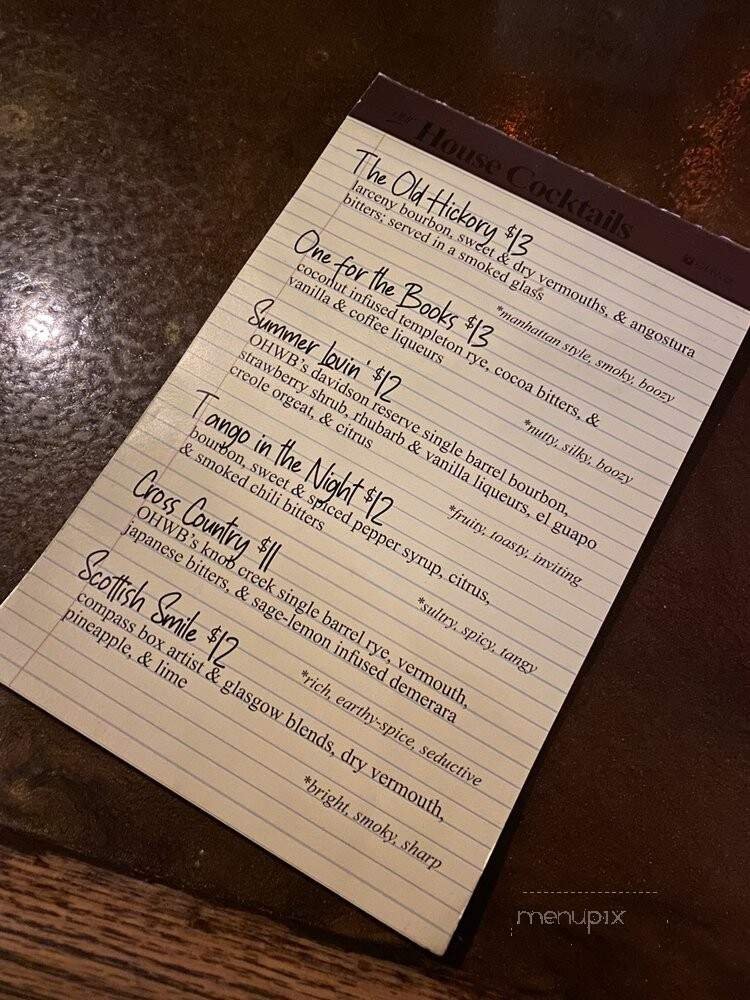 our House Cocktails
The Old Hickory $13
larceny bourbon, sweet & dry vermouths, & angostura
bitters; served in a smoked glass
*manhattan style, smoky, boozy
One for the Books $13
coconut infused templeton rye, cocoa bitters, &
vanilla & coffee liqueurs
*nutty, silky, boozy
Summer Lovin' $12
OHWB's davidson reserve single barrel bourbon,
strawberry shrub, rhubarb & vanilla liqueurs, el guapo
creole orgeat, & citrus
*fruity, toasty, inviting
Tango in the Night $12
bourbon, sweet & spiced pepper syrup, citrus,
& smoked chili bitters
*sultry, spicy, tangy
Cross Country $11
OHWB's knob creek single barrel rye, vermouth,
japanese bitters, & sage-lemon infused demerara
*rich, earthy-spice, seductive
Scottish Smile $12
compass box artist & glasgow blends, dry vermouth,
pineapple, & lime
*bright, smoky, sharp
menupix